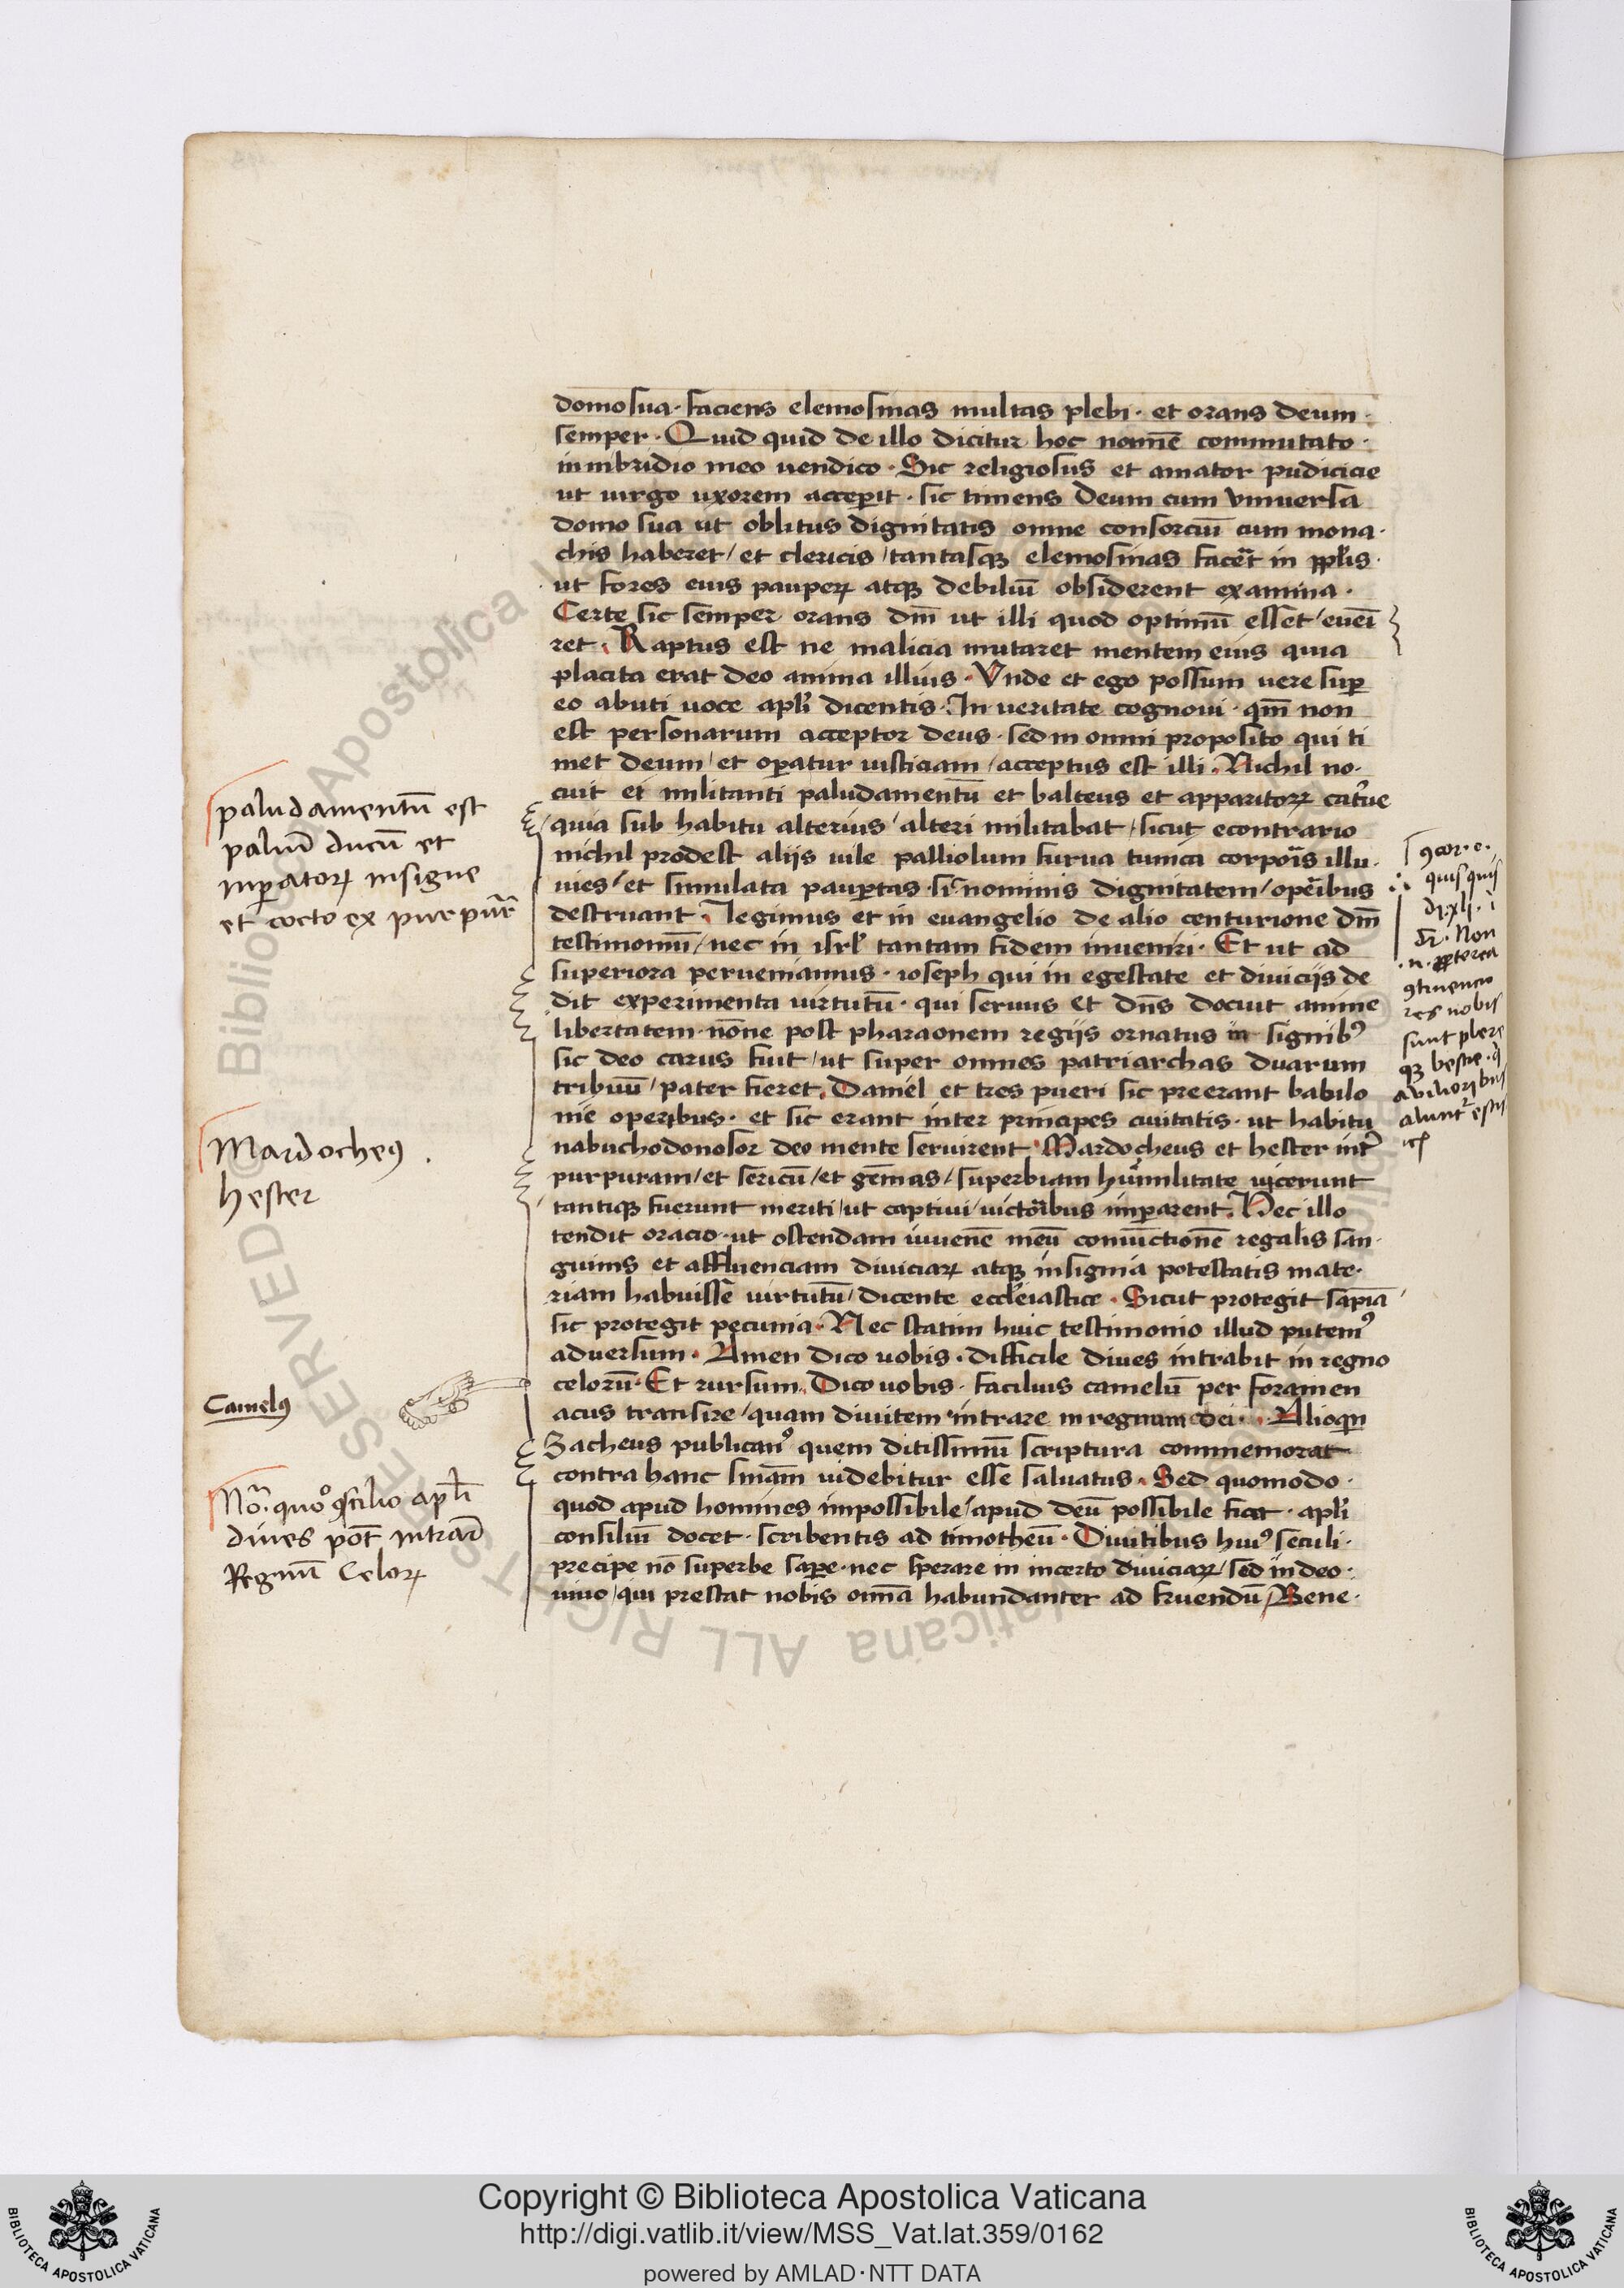 domo sua · faciens elemosinas multas plebi · et orans deum ·
semper · Quid quid de illo dicitur hoc nomīe commutato ·
in nibridio meo uendico · Sic religiosus et amator pudicicie
ut uirgo uxorem acceꝑit · sic timens deum cum vniuersa
domo sua ut oblitus dignitatis omne consorciū cum mona·
chis haberet / et clericis / tantasqꝫ elemosinas facēt in pplis ·
ut fores eius pauperꝝ atqꝫ debiliū obsiderent examina ·
Certe sic semper orans dm̄ ut illi quod optimū esset / euēi
ret · Raptus est ne malicia mutaret mentem eius quia
placita erat deo anima illius · Vnde et ego possum uere suꝑ
eo abuti uoce apli dicentis · In ueritate cognoui · qm̄ non
est personarum acceptor deus · sed in omni proposito qui ti
met deum / et oꝑatur iusticiam / acceptus est illi · Nichil no·
cuit ei militanti paludamentū et balteus et apparitoꝝ cat'ue
quia sub habitu alterius / alteri militabat / sicut econtrario
nichil prodest alijs uile palliolum furua tunica corpoīs illu·
uies / et simulata pauꝑtas · si nominis dignitatem / opēibus
destruant · legimus et in euangelio de alio centurione dm̄
testimoniū / nec in isrl' tantam fidem inueni · Et ut ad
superiora perueniamus · ioseph qui in egestate et diuicijs de
dit experimenta uirtutū · qui seruus et dn̄s docuit anime
libertatem · nōne post pharaonem regijs ornatus in signibꝰ
sic deo carus fuit / ut super omnes patriarchas duarum
tribuū / pater fieret · Daniel et tres pueri sic preerant babilo
nie operibus · et sic erant inter principes ciuitatis · ut habitu
nabuchodonosor deo mente seruirent · Mardocheus et hester int'
purpuram / et sericū / et gēmas / superbiam humilitate vicerunt
tantiqꝫ fuerunt meriti / ut captiui / victoribus imꝑarent. Hec illo
tendit oracio · ut ostendam iuuenē meū coniūctionē regalis san·
guinis et affluenciam diuiciaꝝ atqꝫ insignia potestatis mate·
riam habuisse uirtutū / dicente eccl'eiastice · Sicut protegit sapīa /
sic protegit pecunia · Nec statim huic testimonio illud putemꝰ
aduersum · Amen dico uobis · difficile diues intrabit in regno
celorū · Et rursum. Dico uobis · facilius camelū per foramen
acus transire / quam diuitem intrare in regnum dei · Alioqn
Zacheus publicanꝰ quem ditissimū scriptura commemorat
contra hanc sniam uidebitur esse saluatus · Sed quomodo ·
quod apud homines impossibile / apud deū possibile fiat · apli
consiliū docet · scribentis ad timotheū · Diuitibus huiꝰ seculi ·
precipe nō superbe saꝑe · nec sperare in incerto diuiciaꝝ / sed in deo ·
uiuo / qui prestat nobis omīa habundanter ad fruendū / Bene ·
paludamentū est
paliū ducū et
inꝑatorꝝ insigne
et cocto ex purpur
Mardocheꝰ .
hester
Camelꝰ
No. quoº ꝯsilio apli
diues pōt intrar
Regnū Celorꝝ
quisquis
Non
ꝯtinencio
res nobis
sunt plere
qꝫ bestie ·
Copyright © Biblioteca Apostolica Vaticana
http://digi.vatlib.it/view/MSS_Vat.lat.359/0162
powered by AMLAD·NTT DATA
BIBLIOTECA APOSTOLICA VATICANA
BIBLIOTECA APOSTOLICA VATICANA